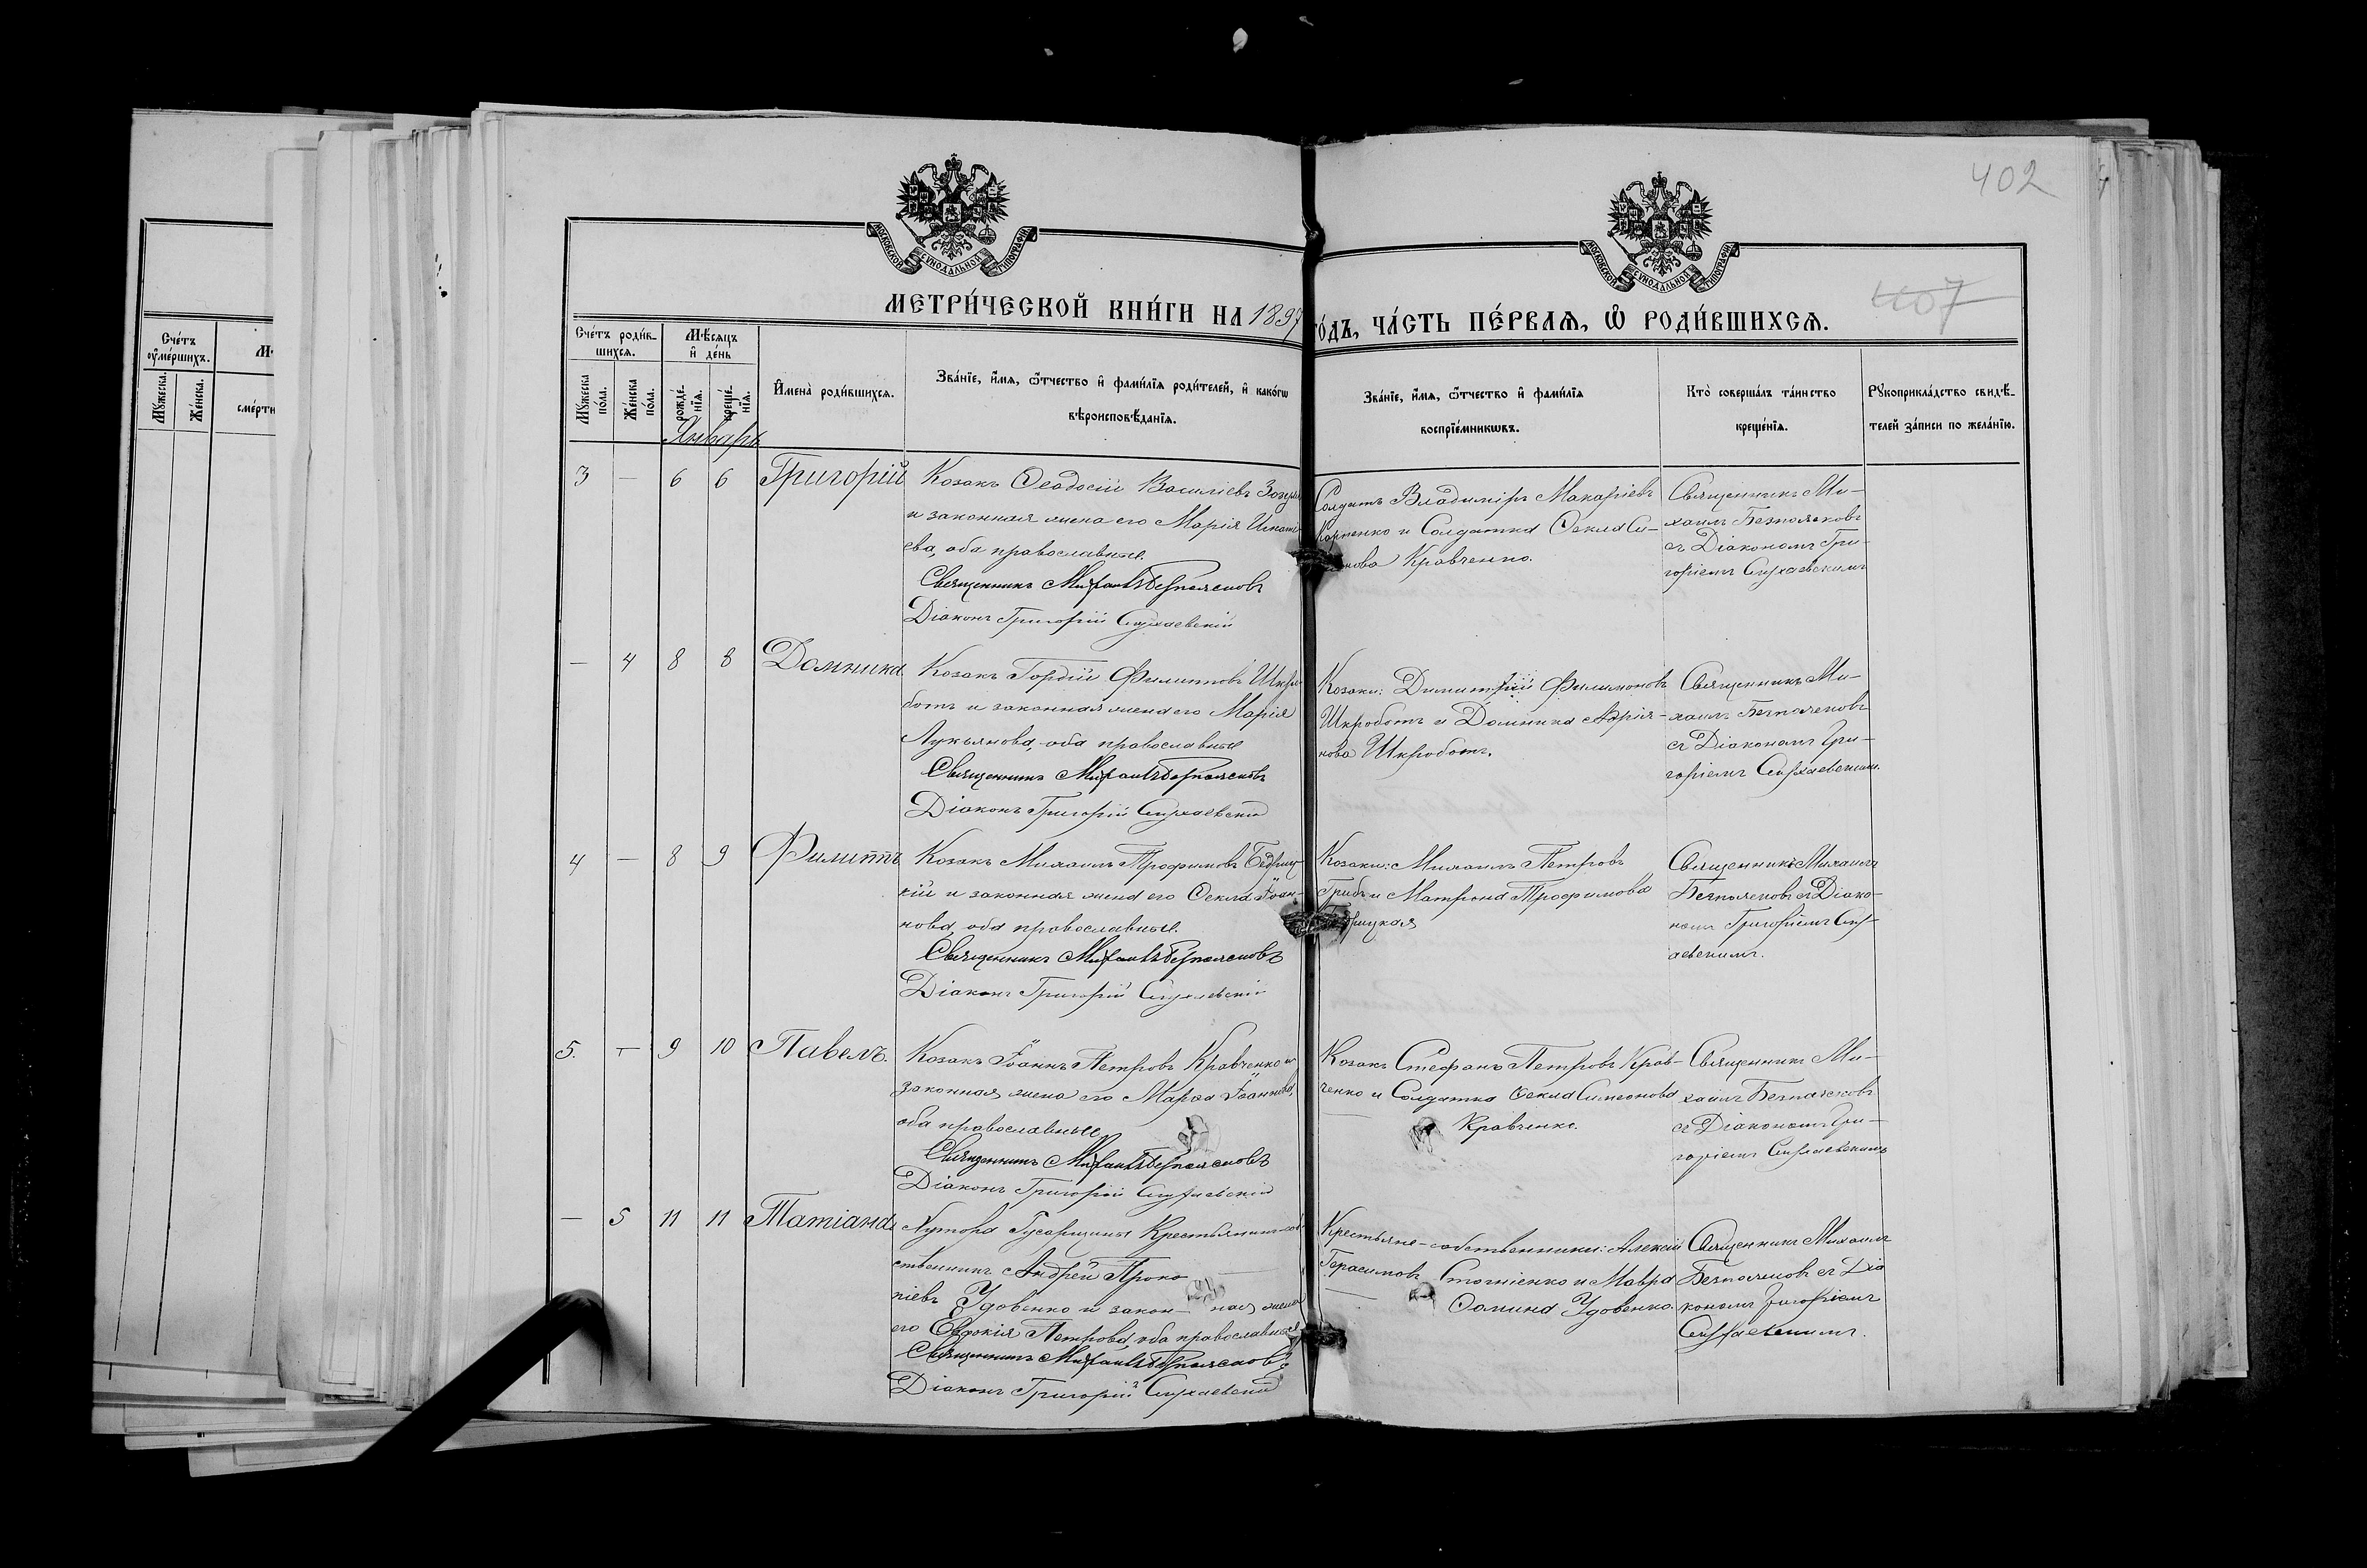 402
407
МОСКОВСКОЙ СѴНОДАЛЬНОЙ ТИПОГРАФІИ
МОСКОВСКОЙ СѴНОДАЛЬНОЙ ТИПОГРАФІИ
МЕТРИ́ЧЕСКОЙ КНИ́ГИ НА 1897
ГО́ДЪ, ЧА́СТЬ ПЕ́РВАѦ, Ѽ РОДИ́ВШИХСѦ.
Сче́тъ оу҆ме́ршихъ.
Му́жеска.
Же́нска.
сме́рти
Сче́тъ роди́в-
шихсѧ.
Му́жеска по́ла.
Же́нска по́ла.
Мѣ́сѧцъ
и҆ де́нь
рожде́нїѧ.
креще́нїѧ.
И҆мена̀ роди́вшихсѧ.
Зва́нїе, и҆́мѧ, ѻ҆́тчество и҆ фами́лїѧ роди́телей, и҆ како́гѡ
вѣроисповѣ́данїѧ.
Зва́нїе, и҆́мѧ, ѻ҆́тчество и҆ фами́лїѧ
воспрїе́мникѡвъ.
Кто̀ соверша́лъ та́инство
креще́нїѧ.
Рꙋкоприкла́дство свидѣ́-
телей за́писи по жела́нїю.
Январь
3 — 6 6 Григорій
Козакъ Ѳеодосій Василіевъ
и законная жена его Марія Игнать
ева, оба православные.
Священникъ Михаилъ Безпоясковъ
Діаконъ Григорій
Солдатъ Владиміръ Макаріевъ
Корненко и Солдатка Ѳекла Си-
нова Кравченко.
Священникъ Ми-
хаилъ Безпоясковъ
съ Діакономъ Гри-
горіемъ
— 4 8 8 Домника
Козакъ Гордій Филиповъ Шкро
ботъ и законная жена его Марія
Лукьянова, оба православные
Священникъ Михаилъ Безпоясковъ
Діаконъ Григорій
Козаки: Димитрій Филимоновъ
Шкроботъ и Домника Адрія-
нова Шкроботъ.
Священникъ Ми-
хаилъ Безпоясковъ
съ Діакономъ Гри-
горіемъ
4 — 8 9 Филиппъ
Козакъ Михаилъ Трофимовъ
кій и законная жена его Ѳекла Іоан-
нова, оба православные.
Священникъ Михаилъ Безпоясковъ
Діаконъ Григорій
Козаки: Михаилъ Петровъ
Грибъ и Матрона Трофимова
рицкая
Священникъ Михаилъ
Безпоясковъ съ Діако-
номъ Григоріемъ
аевскимъ.
5. — 9 10 Павелъ.
Козакъ Іоаннъ Петровъ Кравченко и
законная жена его Марѳа Іоаннова,
оба православные
Священникъ Михаилъ Безпоясковъ
Діаконъ Григорій
Козакъ Стефанъ Петровъ Крав-
ченко и Солдатка Ѳекла Симеонова
Кравченко.
Священникъ Ми-
хаилъ Безпоясковъ
съ Діакономъ Гри-
горіемъ
— 5 11 11 Татіана
Хутора Гусарщины Крестьянинъ-соб-
ственникъ Андрей Проко
піевъ Удовенко и закон-ная жена
его Евдокія Петрова, оба православные
Священникъ Михаилъ Безпоясковъ
Діаконъ Григорій
Крестьяне-собственники: Алексій
Герасимовъ и Мавра
Ѳомина Удовенко.
Священникъ Михаилъ
Безпоясковъ съ Діа
кономъ Григоріемъ